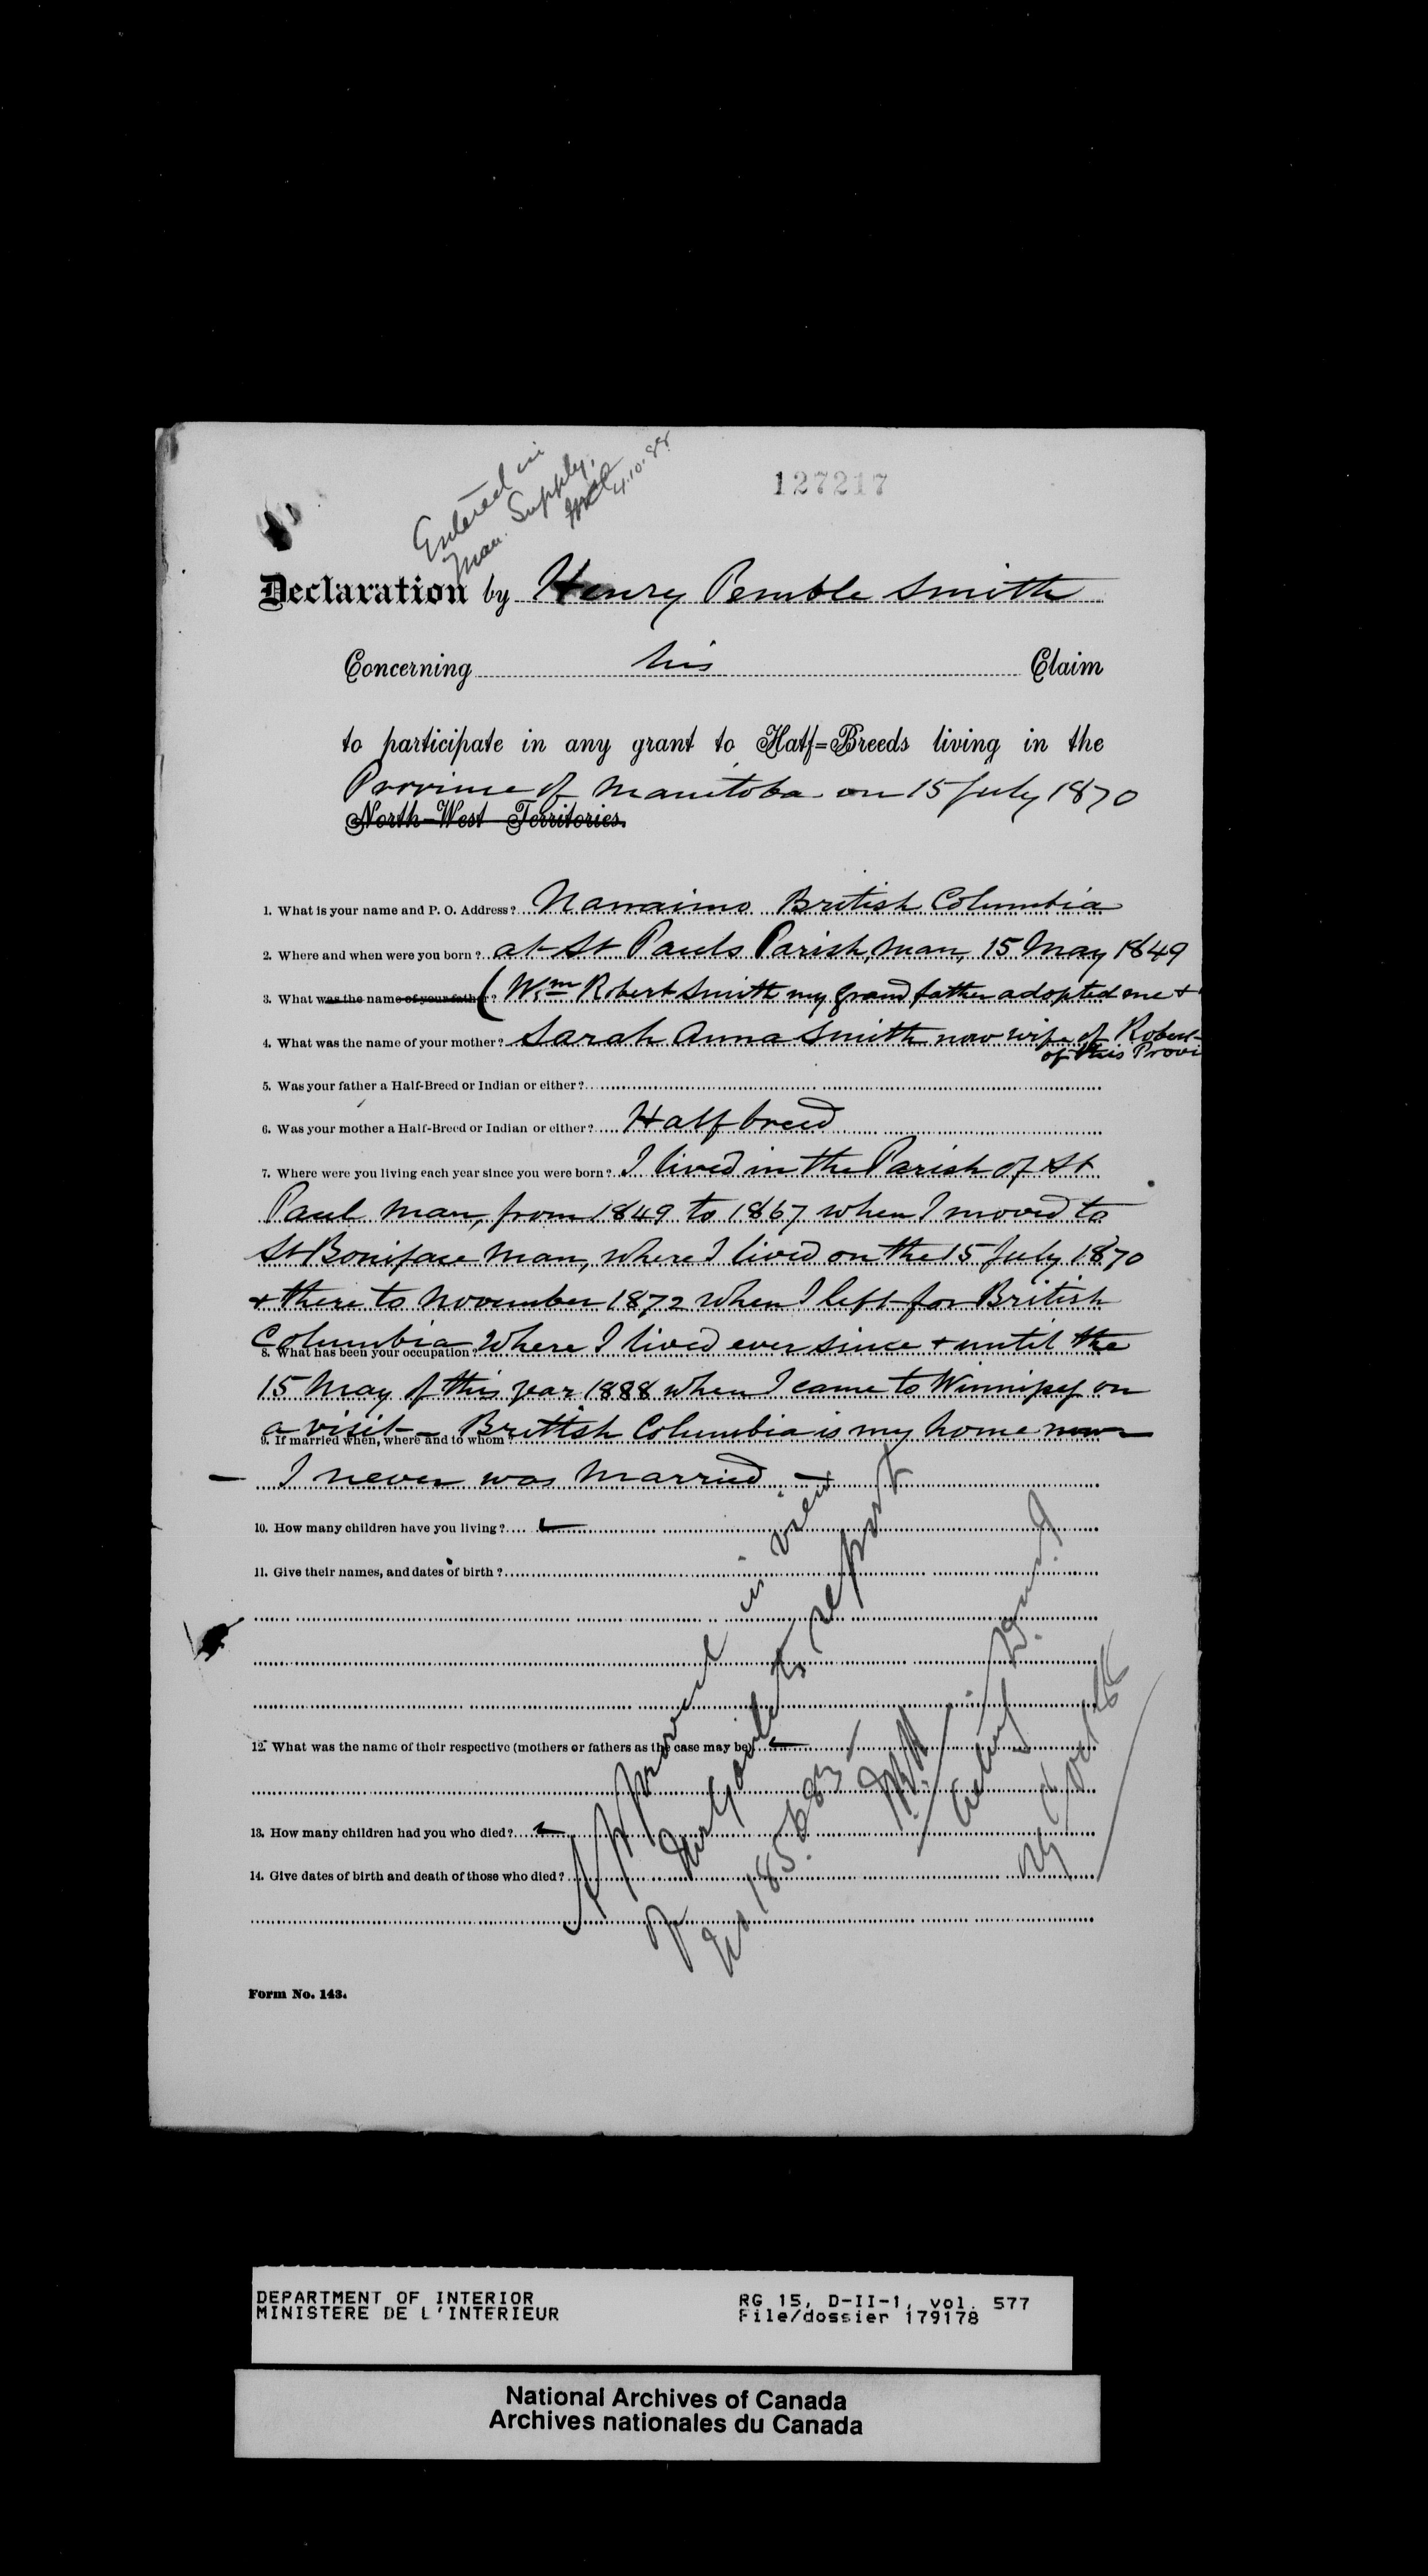 Entered in
Man. Supply.
4.10.88
127217
Declaration by Henry Pemble Smith
Concerning his Claim
to participate in any grant to Half=Breeds living in the
Province of Manitoba on 15 July 1870
North-West Territories.
1. What is your name and P. O. Address? Nanaimo British Columbia
2. Where and when were you born? at St Pauls Parish, Man, 15 May 1849
3. What was the name of your father? (Wm Robert Smith my grand father adopted me +
4. What was the name of your mother? Sarah Anna Smith now wife of Robert
of this Provi
5. Was your father a Half-Breed or Indian or either?
6. Was your mother a Half-Breed or Indian or either? Half breed
7. Where were you living each year since you were born? I lived in the Parish of St
Paul Man, from 1849 to 1867 when I moved to
St Boniface Man, where I lived on the 15 July 1870
+ there to November 1872 when I left for British
Columbia Where I lived ever since + until the
8. What has been your occupation?
15 May of this year 1888 when I came to Winnipeg on
a visit - British Columbia is my home now
9. If married when, where and to whom?
— I never was married —
10. How many children have you living?
11. Give their names, and dates of birth?
12. What was the name of their respective (mothers or fathers as the case may be)
13. How many children had you who died?
14. Give dates of birth and death of those who died?
Approved in view
of report
Form No. 143.
DEPARTMENT OF INTERIOR
MINISTERE DE L'INTERIEUR
RG 15, D-II-1, vol. 577
File/dossier 179178
National Archives of Canada
Archives nationales du Canada